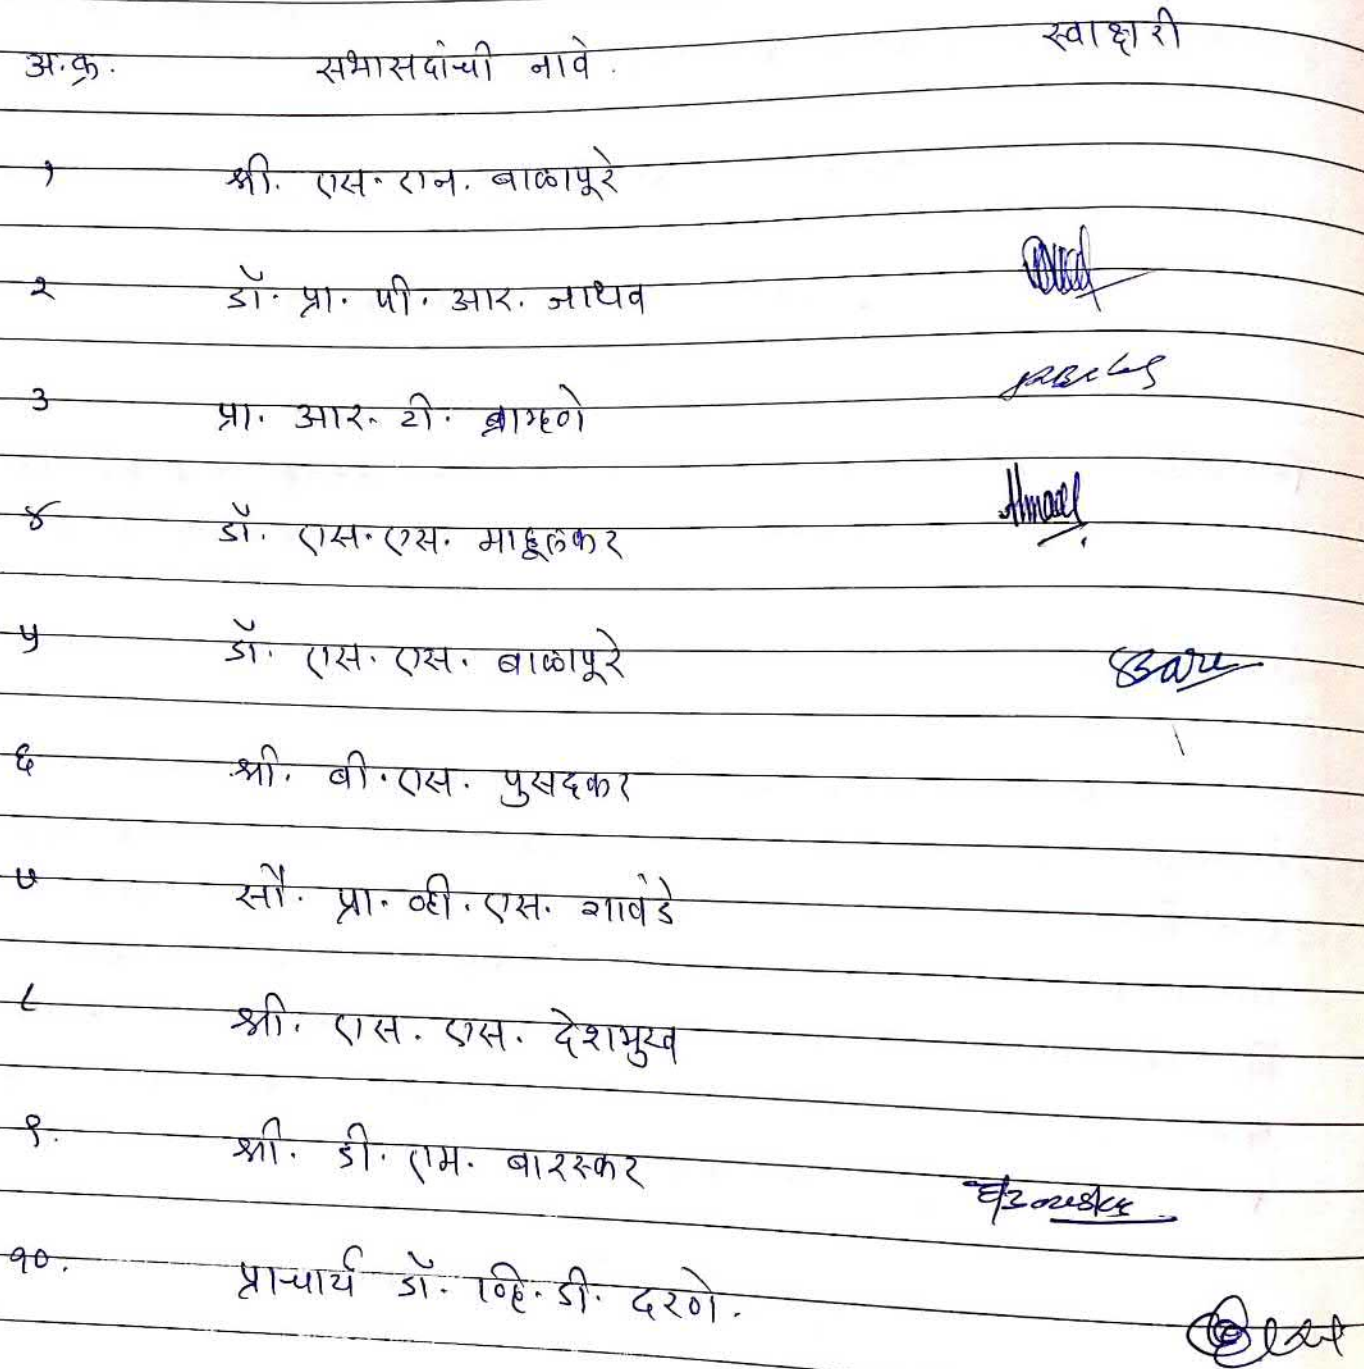 अ.क्र. सभासदांची नावे. स्वाक्षरी
१ श्री. एस. एन. बाळापूरे
२ डॉ. प्रा. पी. आर. जाधव
३ प्रा. आर. टी. ब्राम्हणे
४ डॉ. एस. एस. माहूलकर
५ डॉ. एस. एस. बाळापूरे
६ श्री. बी. एस. पुसदकर
७ सौ. प्रा. व्ही. एस. गावंडे
८ श्री. एस. एस. देशमुख
९. श्री. डी. एम. बारस्कर
१०. प्राचार्य डॉ. व्हि. डी. दरणे.